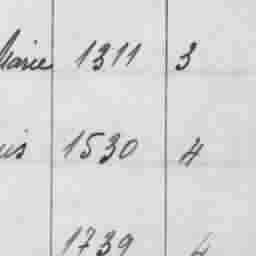 Marie 1311 3
1530 4
1739 4